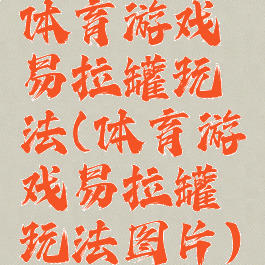 体育游戏
易拉罐玩
法(体育游
戏易拉罐
玩法图片)